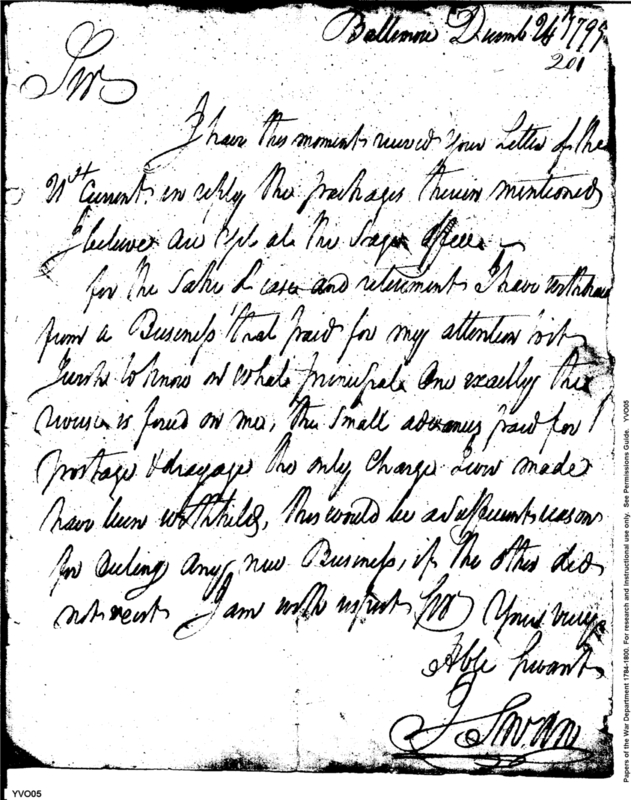 Baltimore Decemb 24 1799
201
Sir
I have this moment received Your Letter of the
21st Current, in reply the packages therein mentioned
I believe are yet at the Stage office
for the Sake of ease and retirement I have withdrawn
from a Business that paid for my attention
I wish to know on what principal One exactly the
is forced on me, the small advances paid for
postage & drayage the only Charge I ever made
have been withheld, this would be a sufficient reason
for any new Business, if the other did
not exist I am with respect Sir Your very
Hble Servant
J Swan
YVO05
Papers of the War Department 1784-1800. For research and instructional use only. See Permissions Guide. YVO05